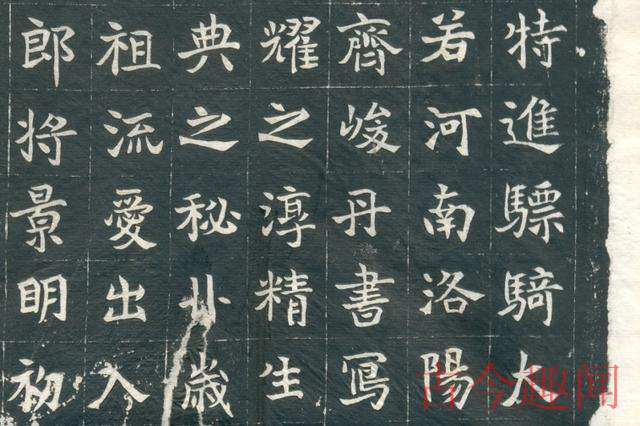 特進驃騎大
若河南洛陽
齊峻丹書冩
耀之淳精生
典之秘丱歲
祖流愛出入
郎將景明初
古今趣闻